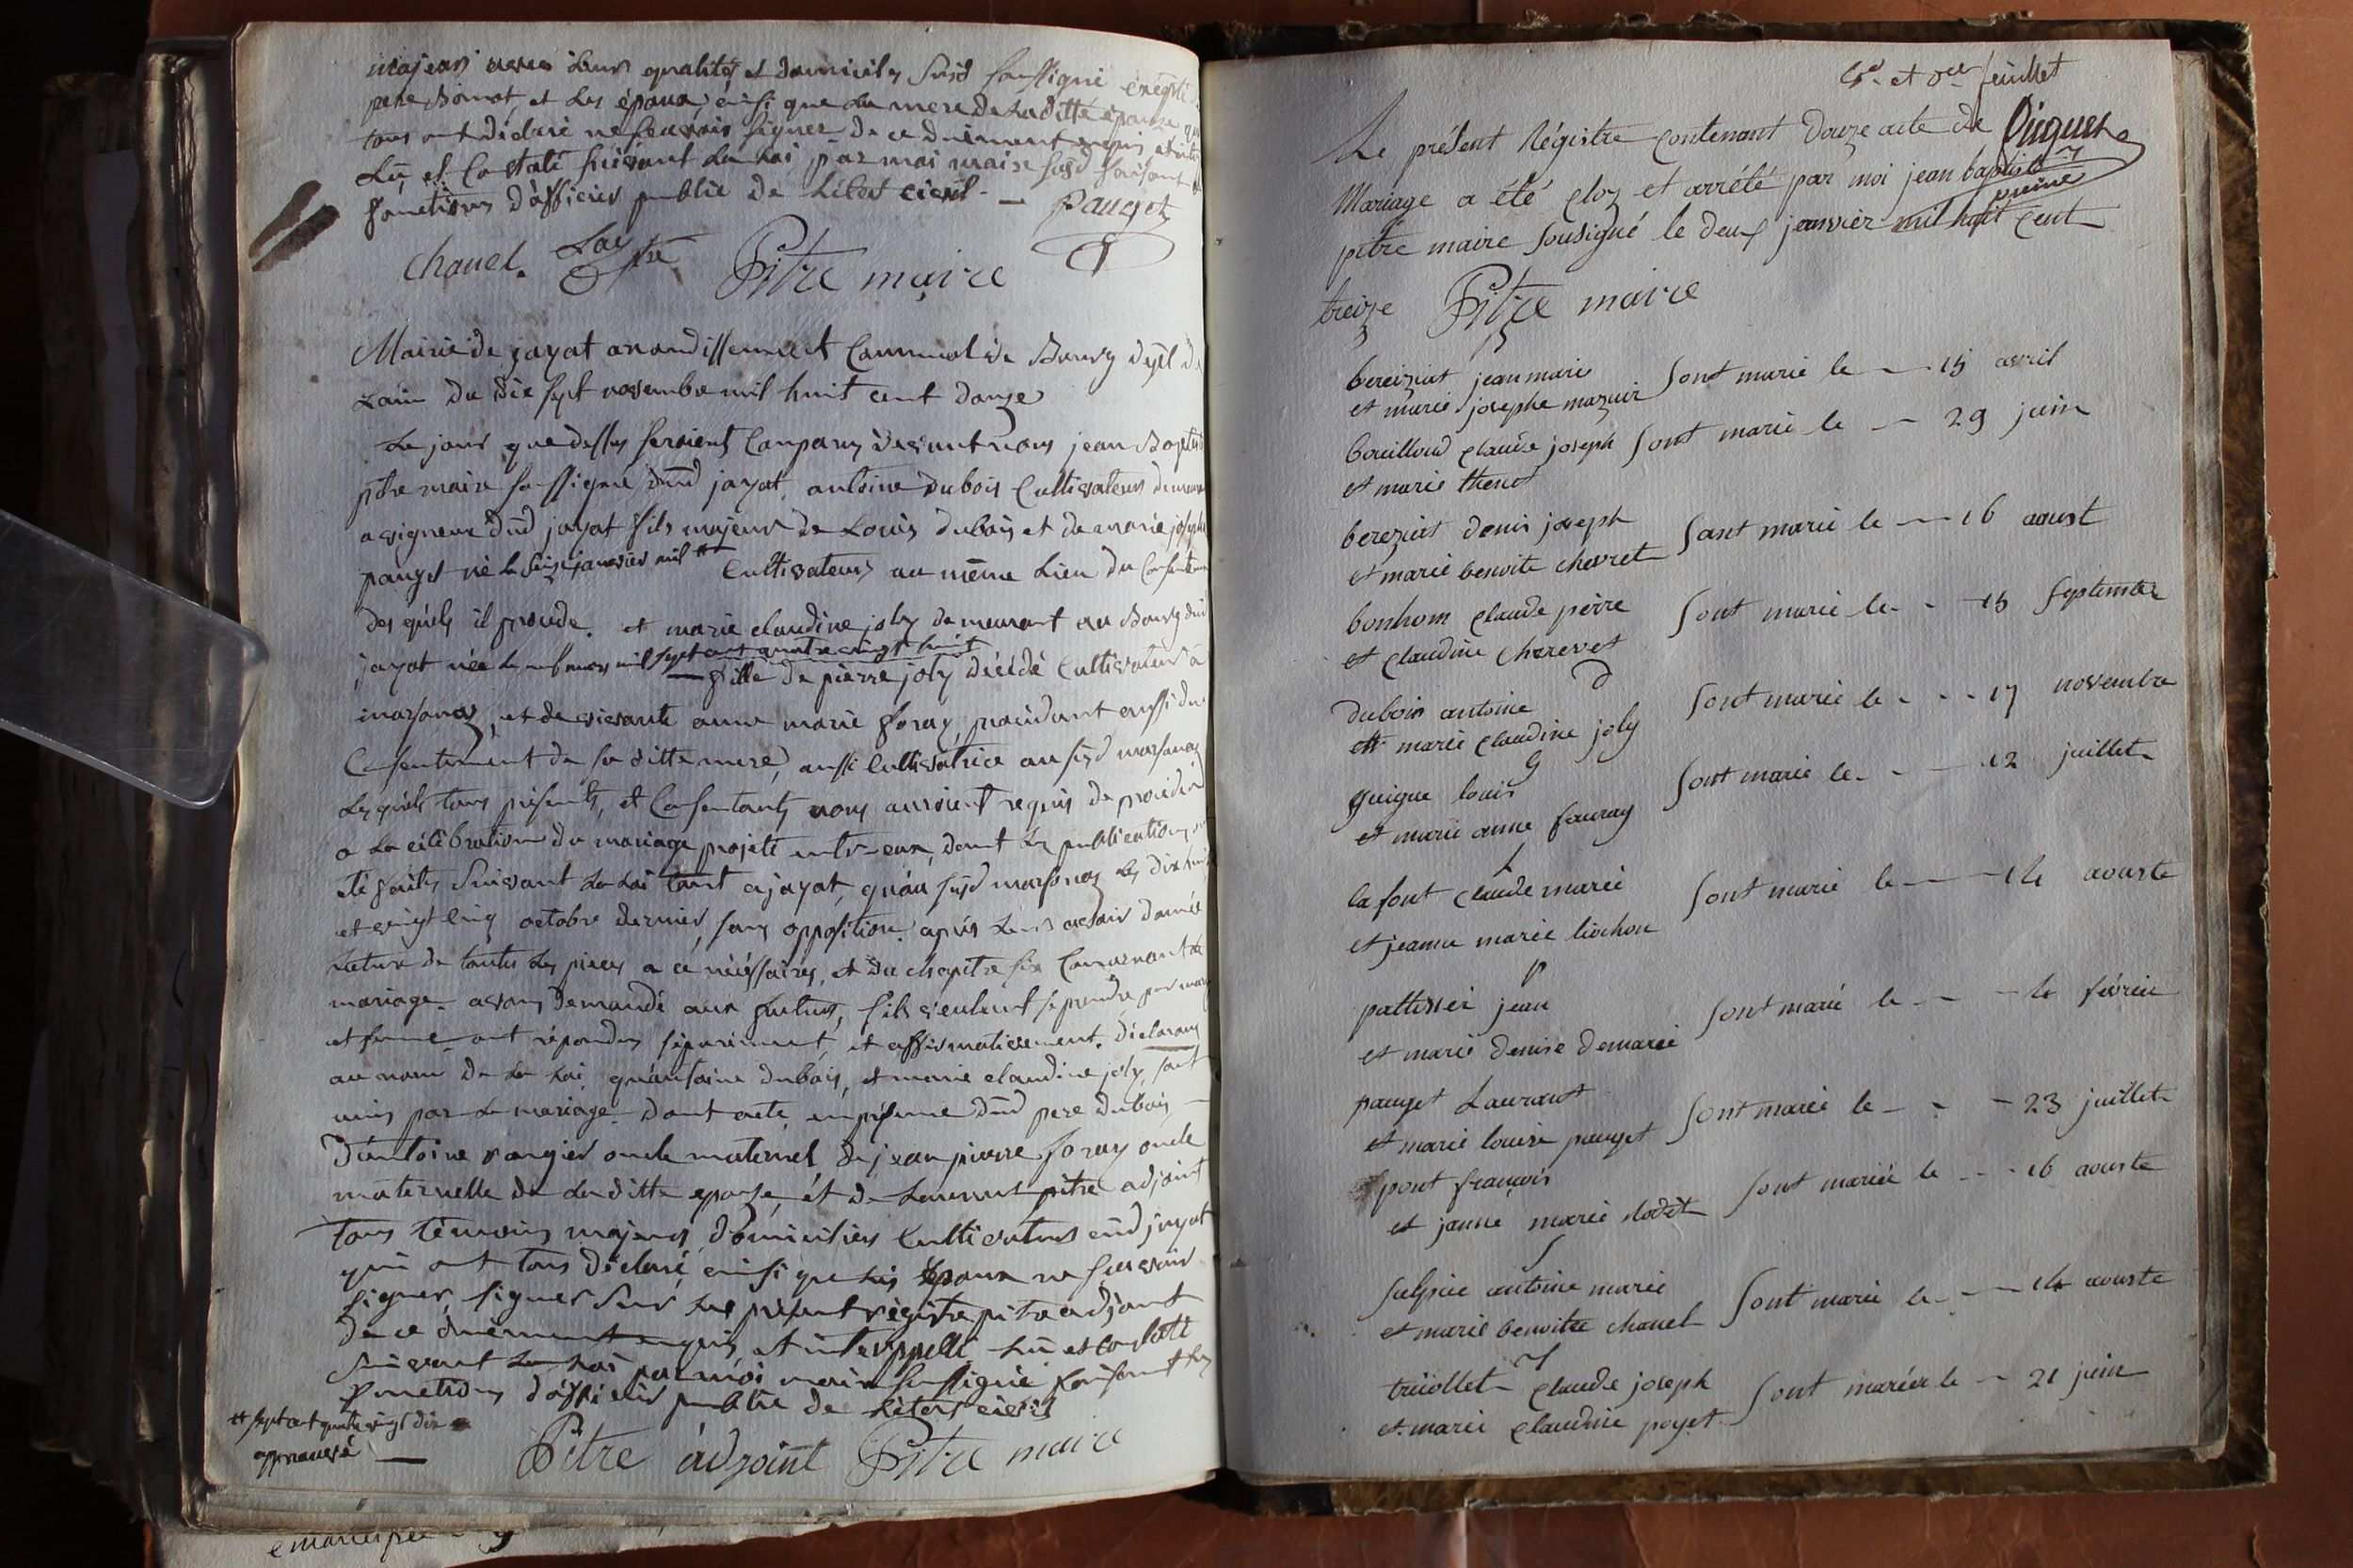 majeurs avec leurs qualités et domiciles susd soussigné éxcepté
pere Bornat et les époux, ainsi que la mere de laditte épouse qui
tous ont déclaré ne seavoir signer de ce duement requis et inter
Lû, et Constaté suivant la Loi par moi maire susd faisant
fonctions d'officier public de L'état civil — Pauget
Chanel. Pitre maire
Mairie de jayat arrondissement Communal de Bourg dept de
Lain du dix sept novembre mil huit cent douze
Le jour que dessus seroient Comparus devant nous jean Baptiste
pitre maire soussigné dud jayat, antoine dubois Cultivateur demeurant
a vigneux dud jayat fils majeur de Louis dubois et de marie josephe
pauget né le seize janvier mil # Cultivateurs au même Lieu du Consentement
des quels il procede. et marie claudine joly demeurant au Bourg dud
jayat née le neuf mars mil sept cent quatre vingt huit
— fille de pierre joly décédé Cultivateur a
marsonas, et de vivante anne marie foray, procédant aussi du
Consentement de sa ditte mere, aussi Cultivatrice au susd marsonas
Lesquels tous présents, et Consentants nous auroient requis de proceder
a La célébration du mariage projeté entr-eux, dont les publications ont
été faites suivant La Loi tant a jayat, qu'au susd marsonas les dix huit
et vingt cinq octobre dernier, sans opposition, après Leurs avoir donné
Lecture de toutes les pieces a ce nécéssaires, et du chapitre six Concernant le
mariage. avons demandé aux futurs, s'ils veulent se prendre pour mary
et femme ont répondus séparément, et affirmativement. déclarons
au nom de La Loi, qu'antoine dubois, et marie claudine joly, sont
unis par Le mariage. dont acte en présence dud pere dubois, —
D'antoine vangier oncle maternel, de jean pierre foray oncle
maternelle de Laditte epouse, et de Laurent pitre adjoint
tous témoins majeurs, domiciliés Cultivateurs aud jayat
qui ont tous déclaré, ainsi que les époux ne seavoir
signer, signer sur Le présent régistre pitre adjoint
de ce duement enquis et interppellé Lû et Constaté
suivant La Loi par moi maire soussigné faisant les
fonctions d'officier public de L'état civil
# sept cent quatre vingt dix
approuvé —
Pitre adjoint Pitre maire
et feuillet
Le présent Régistre Contenant douze acte de
Mariage a été cloz et arrété par moi jean baptiste
pitre maire sousigné le deux janvier mil huit cent
treize Pitre maire
B
bereiziat jean marie
et marie josephe mazuir sont marié le — 15 avril
bouilloud claude joseph sont marié le — 29 juin
et marie thenot
bereziat denis joseph
et marie benoite chevret sont marié le — 16 aoust
bonhom claude pierre sont marié le - - 15 septembre
et claudine cherevet
D
dubois antoine
et marie claudine joly sont marié le - - - 17 novembre
G
guigue louis
et marie anne fauray sont marié le - - — 12 juillet
L
la font claude marie
et jeanne marie liochon sont marié le — — 14 aouste
P
pattissié jean
et marie denise demarié sont marié le - — - 4 février
pauget Laurant
et marie louise pauget sont marié le - - - 23 juillet
pont françois
et janne marie sont mariée le - - - 16 aouste
S
sulpice antoine marie
et marie benoitte chanel sont marié le - - — 14 aouste
T
truollet claude joseph
et marie claudine poyet sont mariée le — 21 juin